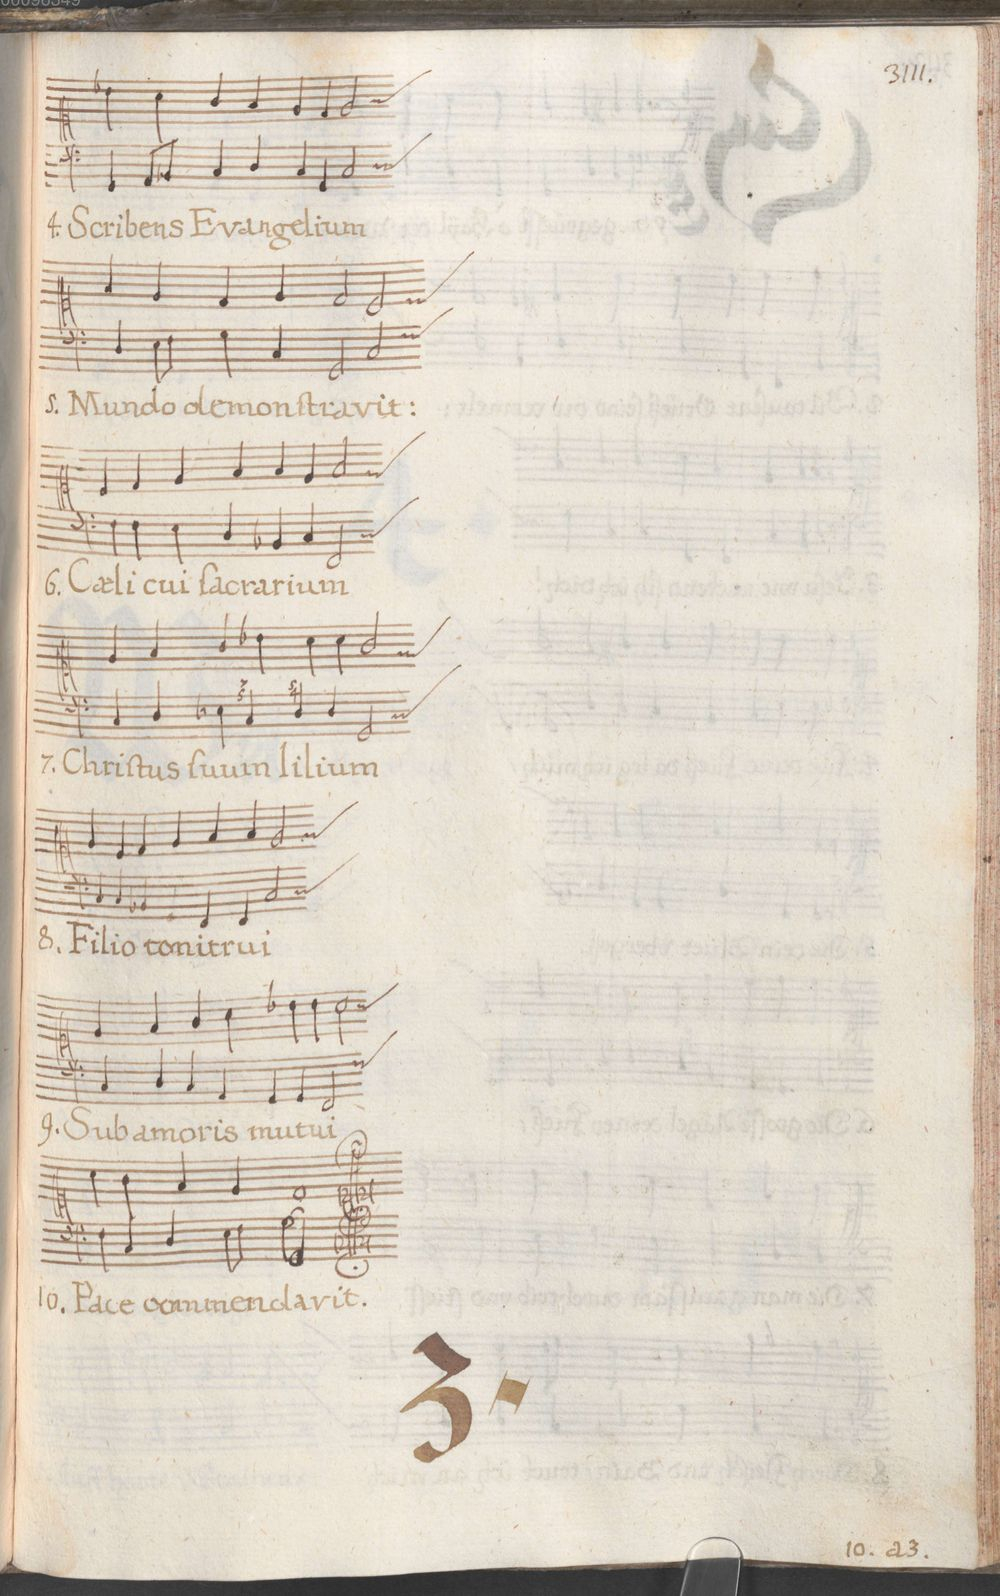 00098349
3111.
4. Scribens Evangelium
5. Mundo demonſtravit:
6. Cæli cui ſacrarium
7. Chriſtus ſuum lilium
8. Filio tonitrui
9. Sub amoris mutui
10. Pace commendavit.
3.
10. a3.